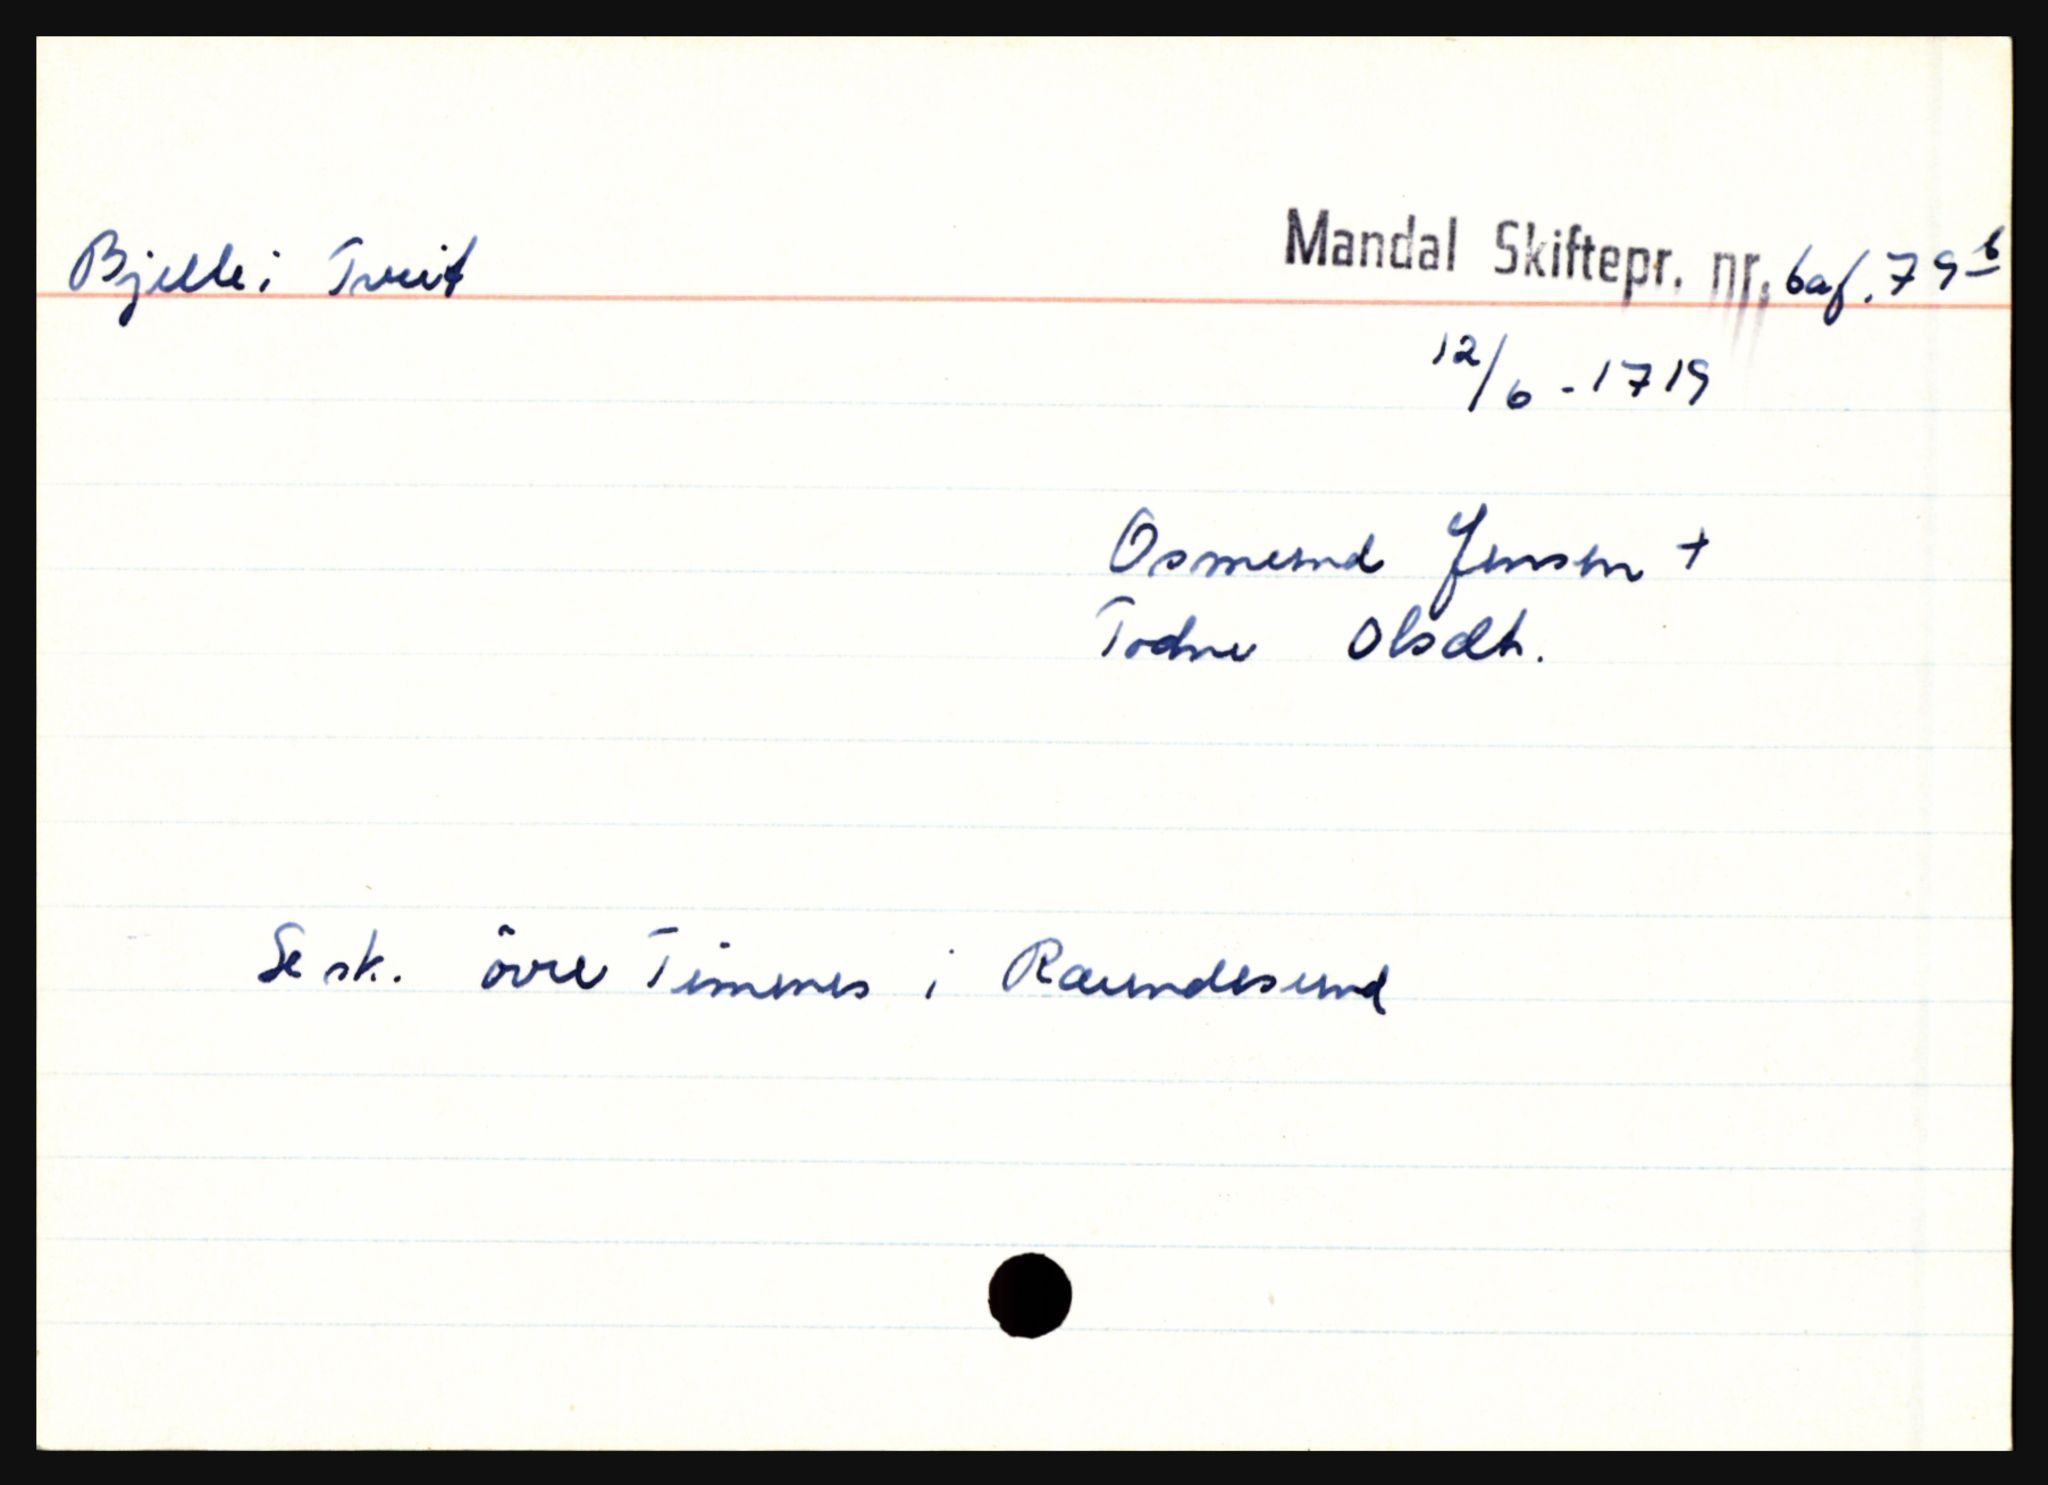 Bjelle i Tveit Mandal Skiftepr. nr. 6a f. 79 b
12/6 - 1719
Osmund Jensen +
Todne Olsdt.
Se sk. övre Timenes i Raundesund